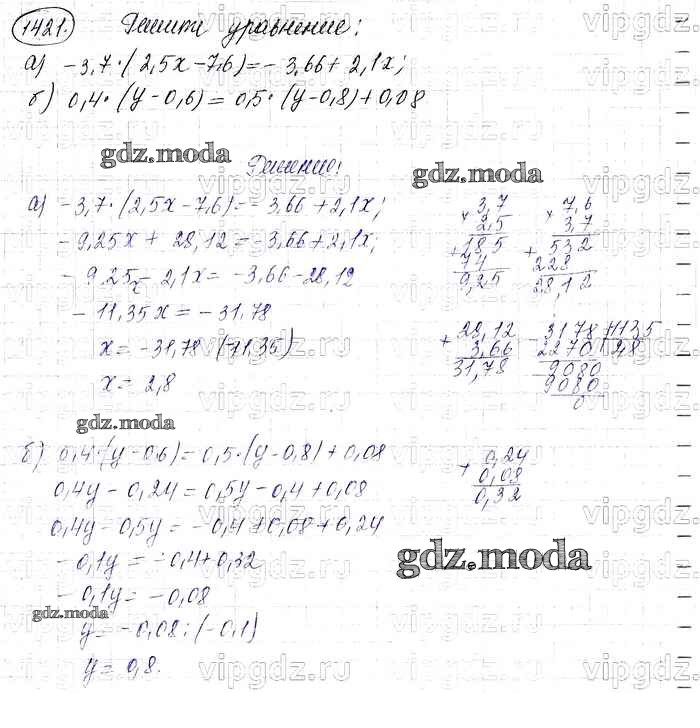 1421. Решить уравнение:
а) -3,7·(2,5x-7,6)=-3,66+2,1x;
б) 0,4·(y-0,6)=0,5·(y-0,8)+0,08
gdz.moda
Решение:
а) -3,7·(2,5x-7,6)=-3,66+2,1x;
-9,25x+28,12=-3,66+2,1x;
-9,25x-2,1x=-3,66-28,12
-11,35x=-31,78
x=-31,78:(-11,35)
x=2,8
× 3,7
2,5
+ 185
74
9,25
× 7,6
3,7
+ 532
228
28,12
+ 28,12
3,66
31,78
- 3178 | 1135
2270 | 2,8
- 9080
9080
0
gdz.moda
б) 0,4·(y-0,6)=0,5·(y-0,8)+0,08
0,4y-0,24=0,5y-0,4+0,08
0,4y-0,5y=-0,4+0,08+0,24
-0,1y=-0,4+0,32
-0,1y=-0,08
y=-0,08:(-0,1)
y=0,8.
+ 0,24
0,08
0,32
gdz.moda
gdz.moda
vipgdz.ru